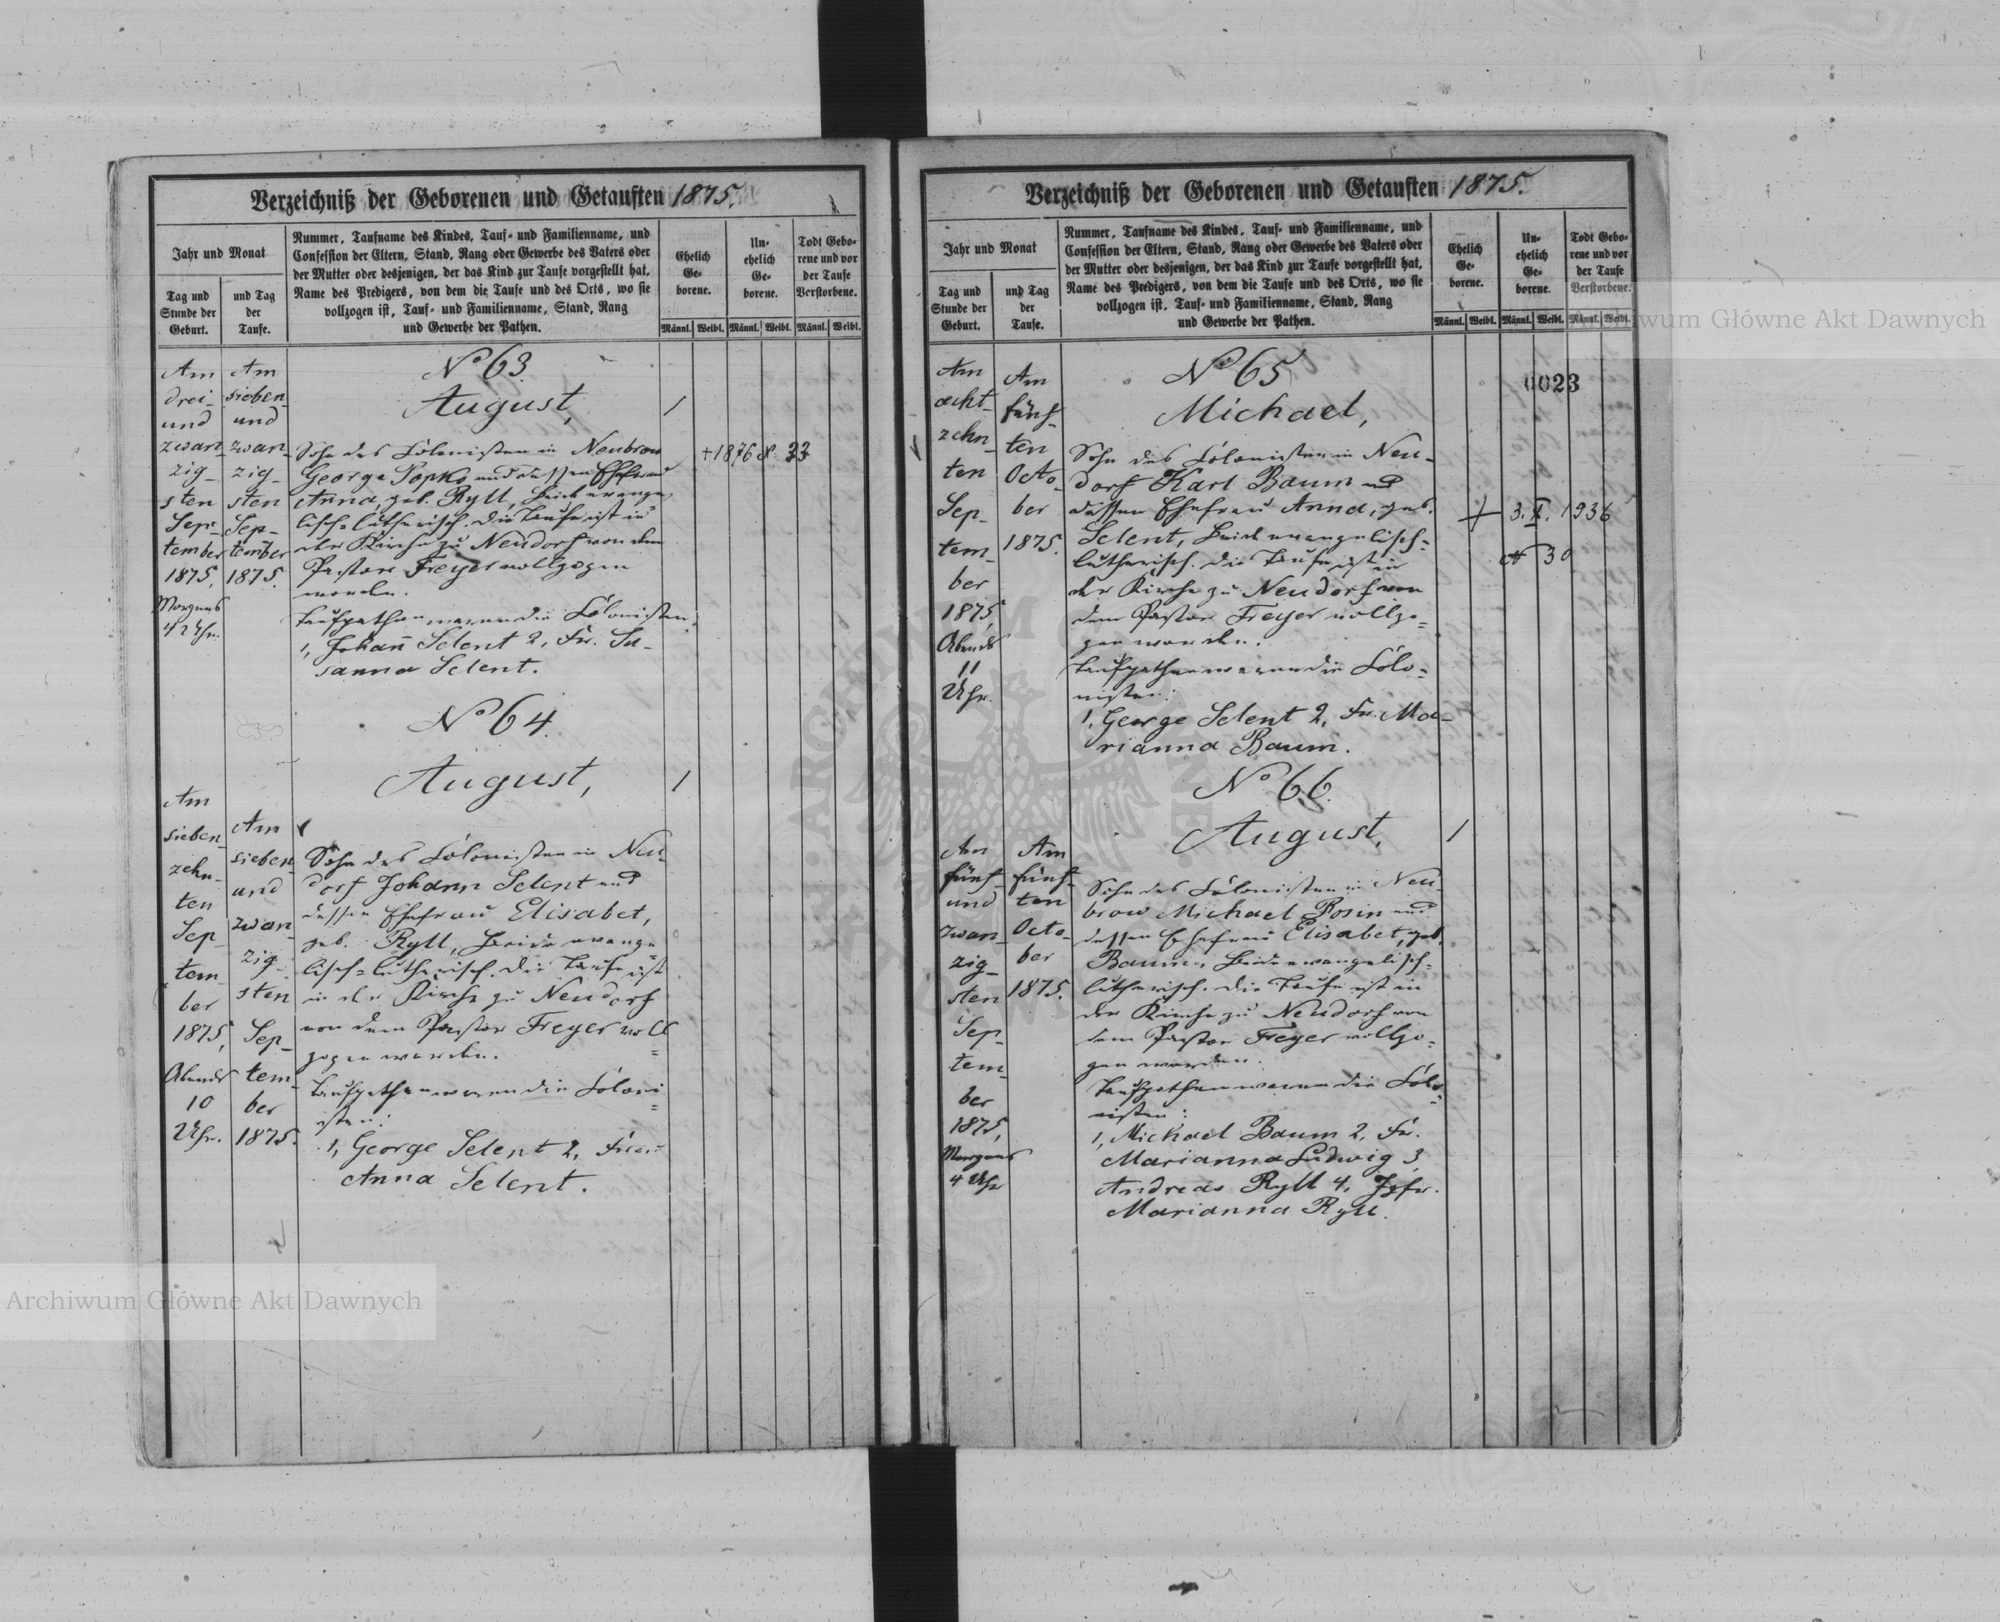 Verzeichniß der Geborenen und Getauften 1875.
Jahr und Monat
Tag und
Stunde der
Geburt.
und Tag
der
Taufe.
Nummer, Taufname des Kindes, Tauf- und Familienname, und
Confession der Eltern, Stand, Rang oder Gewerbe des Vaters oder
der Mutter oder desjenigen, der das Kind zur Taufe vorgestellt hat,
Name des Predigers, von dem die Taufe und des Orts, wo sie
vollzogen ist, Tauf- und Familienname, Stand, Rang
und Gewerbe der Pathen.
Ehelich
Ge-
borene.
Un-
ehelich
Ge-
borene.
Todt Gebo-
rene und vor
der Taufe
Verstorbene.
Männl. Weibl. Männl. Weibl. Männl. Weibl.
Am
drei-
und
zwan-
zig-
sten
Sep-
tember
1875,
Morgens
4 Uhr.
Am
sieben-
und
zwan-
zig-
sten
Sep-
tember
1875.
No 63.
August,
1
Sohn des Colonisten in Neubrow
George Popko und dessen Ehefrau
Anna, geb. Ryll, Beide evange-
lisch-lutherisch. Die Taufe ist in
der Kirche zu Neudorf von dem
Pastor Freyer vollzogen
worden.
Taufpathen waren die Colonisten:
1, Johann Selent 2, Fr. Su-
sanna Selent.
+ 1876 № 33
Am
sieben-
zehn-
ten
Sep-
tem-
ber
1875,
Abends
10
Uhr.
Am
sieben-
und
zwan-
zig-
sten
Sep-
tem-
ber
1875.
No 64.
August,
1
Sohn des Colonisten in Neu-
dorf Johann Selent und
dessen Ehefrau Elisabet,
geb. Ryll, Beide evange-
lisch-lutherisch. Die Taufe ist
in der Kirche zu Neudorf
von dem Pastor Freyer voll
zogen worden.
Taufpathen waren die Coloni
sten:
1, George Selent 2, Frau
Anna Selent.
Verzeichniß der Geborenen und Getauften 1875.
Jahr und Monat
Tag und
Stunde der
Geburt.
und Tag
der
Taufe.
Nummer, Taufname des Kindes, Tauf- und Familienname, und
Confession der Eltern, Stand, Rang oder Gewerbe des Vaters oder
der Mutter oder desjenigen, der das Kind zur Taufe vorgestellt hat,
Name des Predigers, von dem die Taufe und des Orts, wo sie
vollzogen ist, Tauf- und Familienname, Stand, Rang
und Gewerbe der Pathen.
Ehelich
Ge-
borene.
Un-
ehelich
Ge-
borene.
Todt Gebo-
rene und vor
der Taufe
Verstorbene.
Männl. Weibl. Männl. Weibl. Männl. Weibl.
0023
Am
acht-
zehn-
ten
Sep-
tem-
ber
1875,
Abends
11
Uhr.
Am
fünf-
ten
Octo-
ber
1875.
No 65
Michael,
Sohn des Colonisten in Neu-
dorf Karl Baum und
dessen Ehefrau Anna, geb.
Selent, Beide evangelisch-
lutherisch. Die Taufe ist in
der Kirche zu Neudorf von
dem Pastor Freyer vollzo-
gen worden.
Taufpathen waren die Colo-
nisten:
1, George Selent 2, Fr. Ma-
rianna Baum.
+ 3. X. 1936
№ 30
Am
fünf-
und
zwan-
zig-
sten
Sep-
tem-
ber
1875,
Morgens
4 Uhr
Am
fünf-
ten
Octo-
ber
1875.
No 66.
August,
1
Sohn des Colonisten in Neu-
brow Michael Rosin und
dessen Ehefrau Elisabet, geb.
Baum, Beide evangelisch-
lutherisch. Die Taufe ist in
der Kirche zu Neudorf von
dem Pastor Freyer vollzo-
gen worden.
Taufpathen waren die Colo-
nisten:
1, Michael Baum 2, Fr.
Marianna Ludwig 3,
Andreas Ryll 4, Jgfr.
Marianna Ryll.
Archiwum Główne Akt Dawnych
Archiwum Główne Akt Dawnych